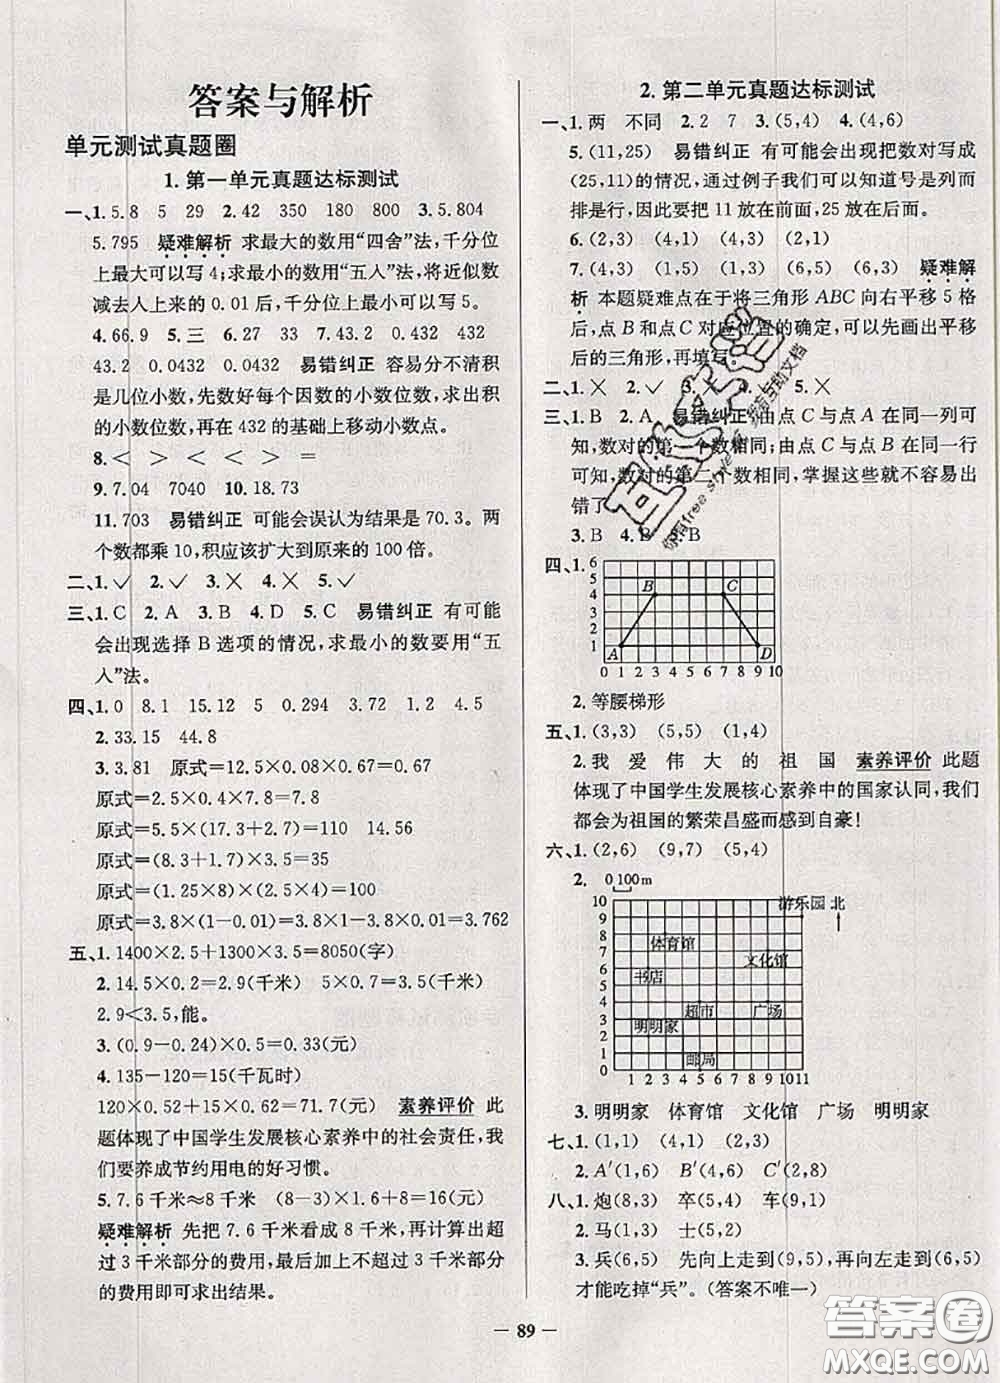 答案与解析
单元测试真题圈
1. 第一单元真题达标测试
一、1.5.8 5 29 2.42 350 180 800 3.5.804
5.795 疑难解析 求最大的数用“四舍”法,千分位
上最大可以写4;求最小的数用“五入”法,将近似数
减去人上来的0.01后,千分位上最小可以写5。
4.66.9 5.三 6.27 33 7.43.2 0.432 432
43.2 0.0432 0.0432 易错纠正 容易分不清积
是几位小数,先数好每个因数的小数位数,求出积
的小数位数,再在432的基础上移动小数点。
8.< > < < > =
9.7.04 7040 10.18.73
11.703 易错纠正 可能会误认为结果是70.3。两
个数都乘10,积应该扩大到原来的100倍。
二、1.✓ 2.✓ 3.✕ 4.✕ 5.✓
三、1.C 2.A 3.B 4.D 5.C 易错纠正 有可能
会出现选择B选项的情况,求最小的数要用“五
入”法。
四、1.0 8.1 15.12 5 0.294 3.6 1.2 4.5
2.33.15 44.8
3.3.81 原式=12.5×0.08×0.67=0.67
原式=2.5×0.4×7.8=7.8
原式=5.2×(17.3+2.7)=110 14.56
原式=(8.3+1.7)×3.5=35
原式=(1.25×8)×(2.5×0.4)=10
原式=3.8×(1-0.01)=3.8×1-3.8×0.01=3.762
五、1.1400×2.5+1300×3.5=8050(字)
2.14.5×0.2=2.9(千米) 5×0.7=3.5(千米)
2.9<3.5,能。
3.(0.9-0.24)×0.5=0.33(元)
4.135-120=15(千瓦时)
120×0.52+15×0.62=71.7(元) 素养评价 此
题体现了中国学生发展核心素养中的社会责任,我
们要养成节约用电的好习惯。
5.7.6千米≈8千米 (8-3)×1.6+8=16(元)
疑难解析 先把7.6千米看成8千米,再计算出超
过3千米部分的费用,最后加上不超过3千米部分
的费用即可求出结果。
2. 第二单元真题达标测试
一、1.两 不同 2.2 7 3.(5,4) 4.(4,6)
5.(11,25) 易错纠正 有可能会出现把数对写成
(25,11)的情况,通过例子我们可以知道号是列而
排是行,因此要把11放在前面,25放在后面。
6.(2,3) (4,1) (4,3) (2,1)
7.(4,3) (1,5) (1,3) (6,5) (6,3) 疑难解
析 本题疑难点在于将三角形ABC向右平移5格
后,点B和点C对应位置的确定,可以先画出平移
后的三角形,再填写。
二、1.✕ 2.✓ 4. 5.✕
三、1.B 2.A 易错纠正 由点C与点A在同一列可
知,数对的第一个数相同;由点C与点B在同一行
可知,数对的第二个数相同,掌握这些就不容易出
错了
3.B 4.B 5.B
四、1. 6
5
4
3
2
1
B C
A D
0 1 2 3 4 5 6 7 8 9 10
2.等腰梯形
五、1.(3,3) (5,5) (1,4)
2.我 爱 伟 大 的 祖 国 素养评价 此题
体现了中国学生发展核心素养中的国家认同,我们
都会为祖国的繁荣昌盛而感到自豪!
六、1.(2,6) (9,7) (5,4)
2. 0 100m
10
9
8
7
6
5
4
3
2
1
游乐园 北
体育馆
文化馆
书店
超市 广场
明明家
邮局
1 2 3 4 5 6 7 8 9 10 11
3.明明家 体育馆 文化馆 广场 明明家
七、1.(1,1) (4,1) (2,3)
2.A′(1,6) B′(4,6) C′(2,8)
八、1.炮(8,3) 卒(5,4) 车(9,1)
2.马(1,3) 士(5,2)
3.兵(6,5) 先向上走到(9,5),再向左走到(6,5)
才能吃掉“兵”。(答案不唯一)
— 89 —
答案圈
MXQE.COM